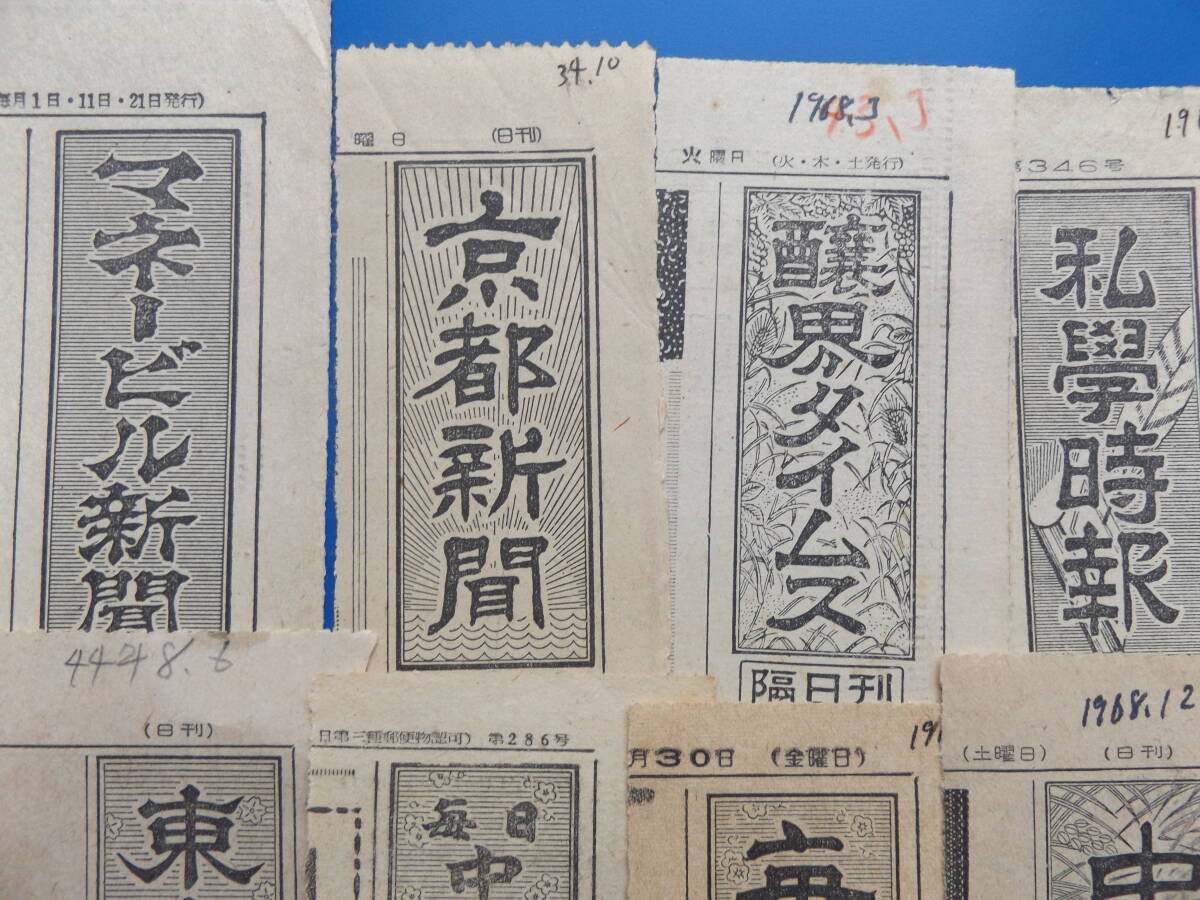 毎月1日・11日・21日発行)
マネービル新聞
34.10
曜日 (日刊)
京都新聞
1968.3
43.3
火曜日 (火・木・土発行)
醸界タイムス
隔日刊
346号
私學時報
44年8.6
(日刊)
東
日第三種郵便物認可) 第286号
毎日
中
月30日 (金曜日)
毎
1968.12
(土曜日) (日刊)